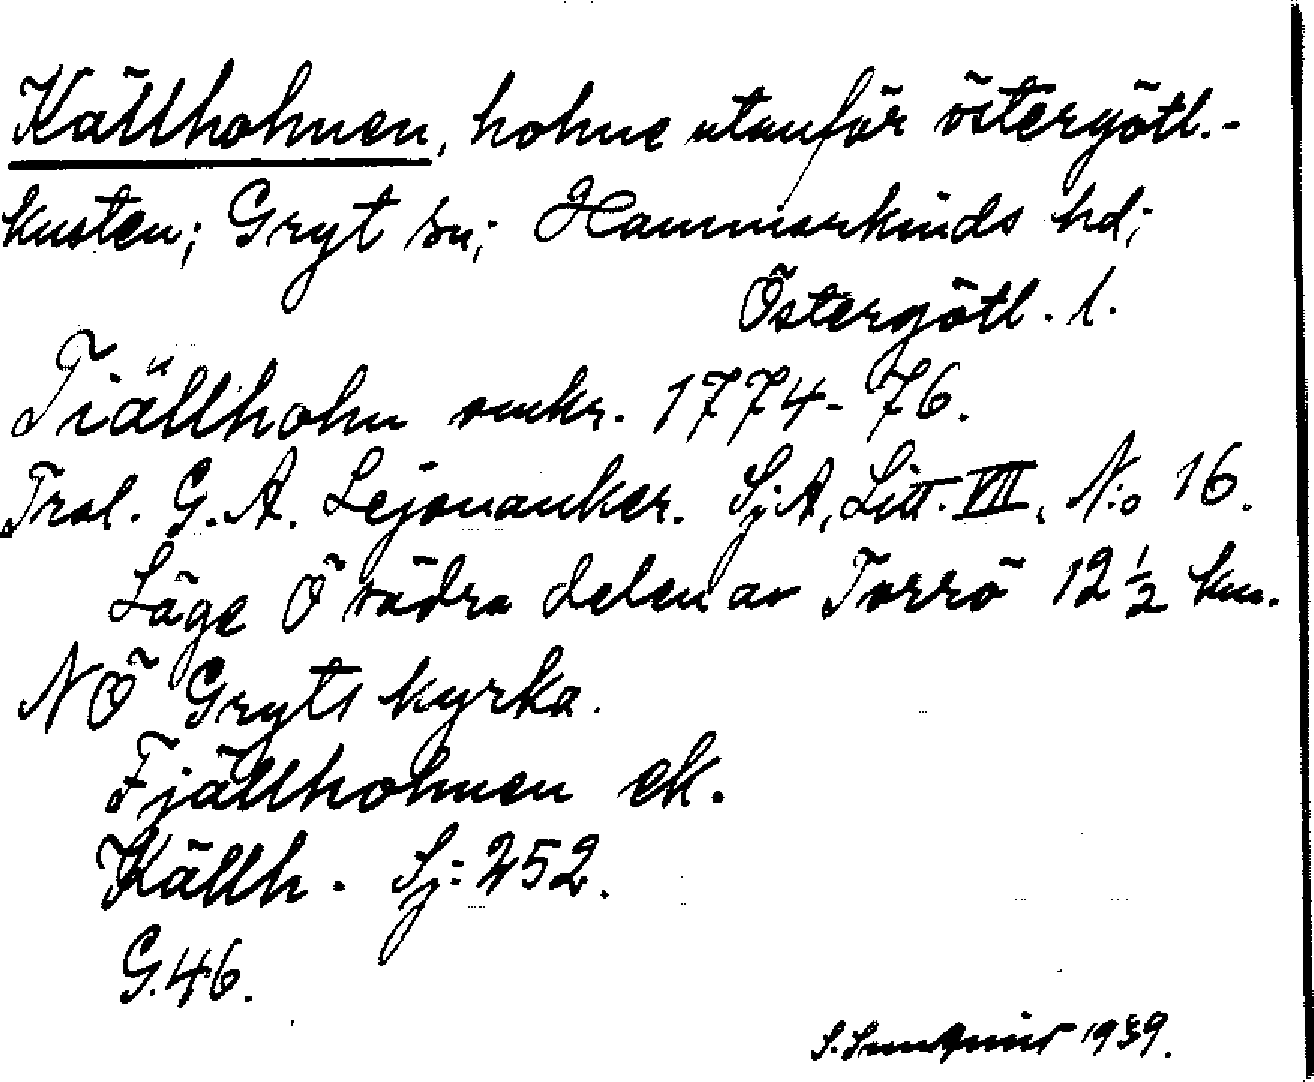 Källholmen, holme utanför östergötl.-
kusten; Gryt sn; Hammarkinds hd;
Östergötl. l.
Tiällholm omkr. 1774-76.
Trol. G. A. Lejonanker. Sj.A, Litt. VII, N:o 16.
Läge Ö södra delen av Torrö 12 ½ km.
NÖ Gryts kyrka.
Fjällholmen ek.
Källh. Sj: 252.
G.46.
1939.